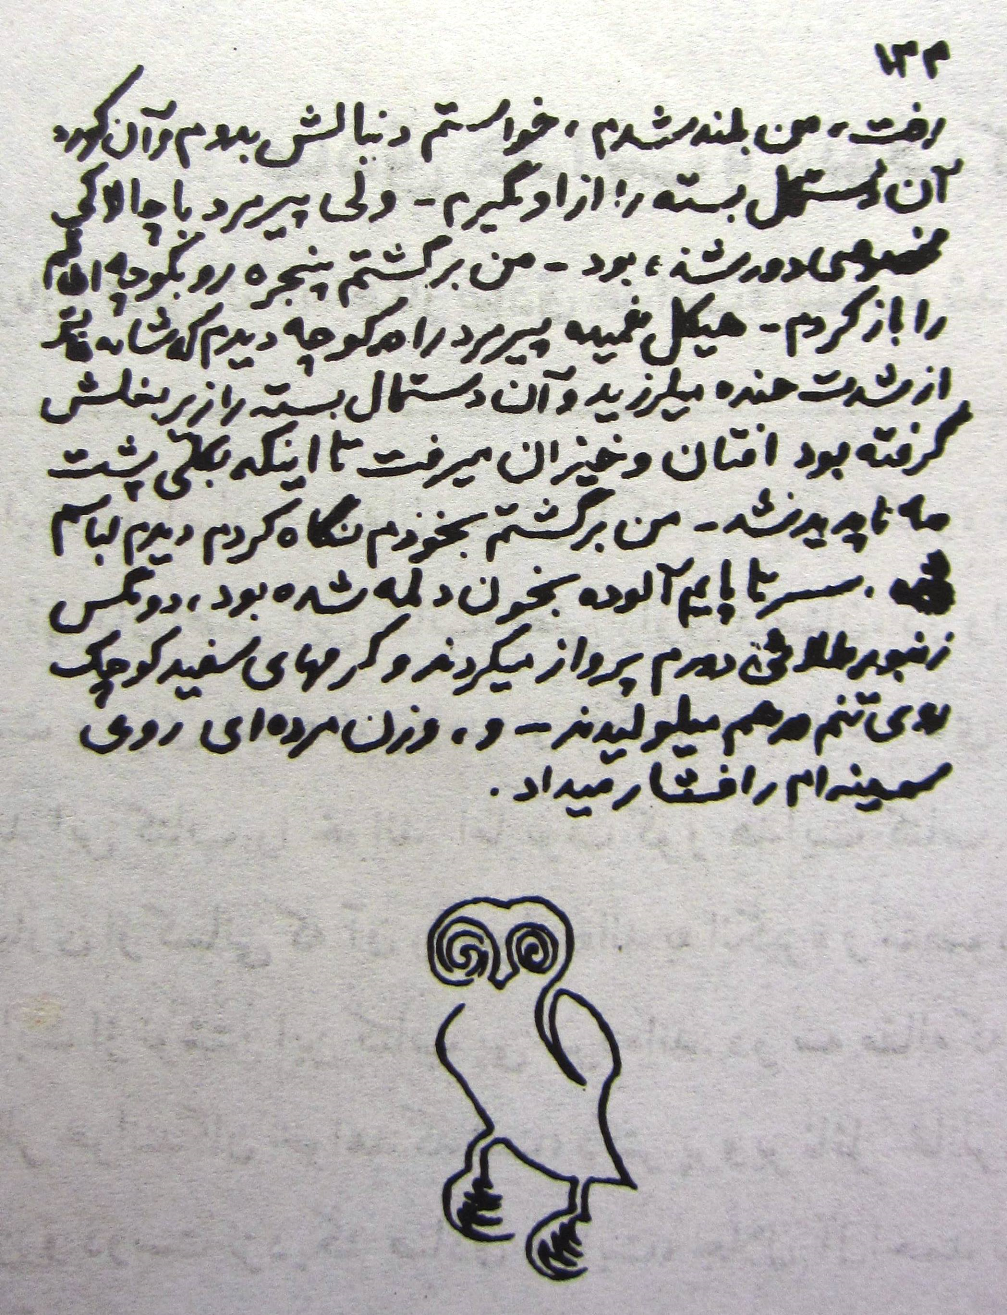 ۱۴۴
رفت، من بلند شدم، خواستم دنبالش بدوم و آن کوزه
آن دستمال بسته را از او بگیرم - ولی پیرمرد با چالاکی
مخصوصی دور شده بود - من برگشتم پنجره رو بکوچه اطاقم
را باز کردم - هیکل خمیده پیرمرد را در کوچه دیدم که شانه‌هایش
از شدت خنده میلرزید و آن دستمال بسته را زیر بغلش
گرفته بود افتان و خیزان میرفت تا اینکه بکلی پشت
مه ناپدید شد - من برگشتم بخودم نگاه کردم دیدم لباسم
سر تا پایم آلوده بخون دلمه شده بود، دو مگس
زنبور طلائی دورم پرواز میکردند و کرمهای سفید کوچک
روی تنم در هم میلولیدند - و، وزن مرده‌ای روی
سینه‌ام را فشار میداد.